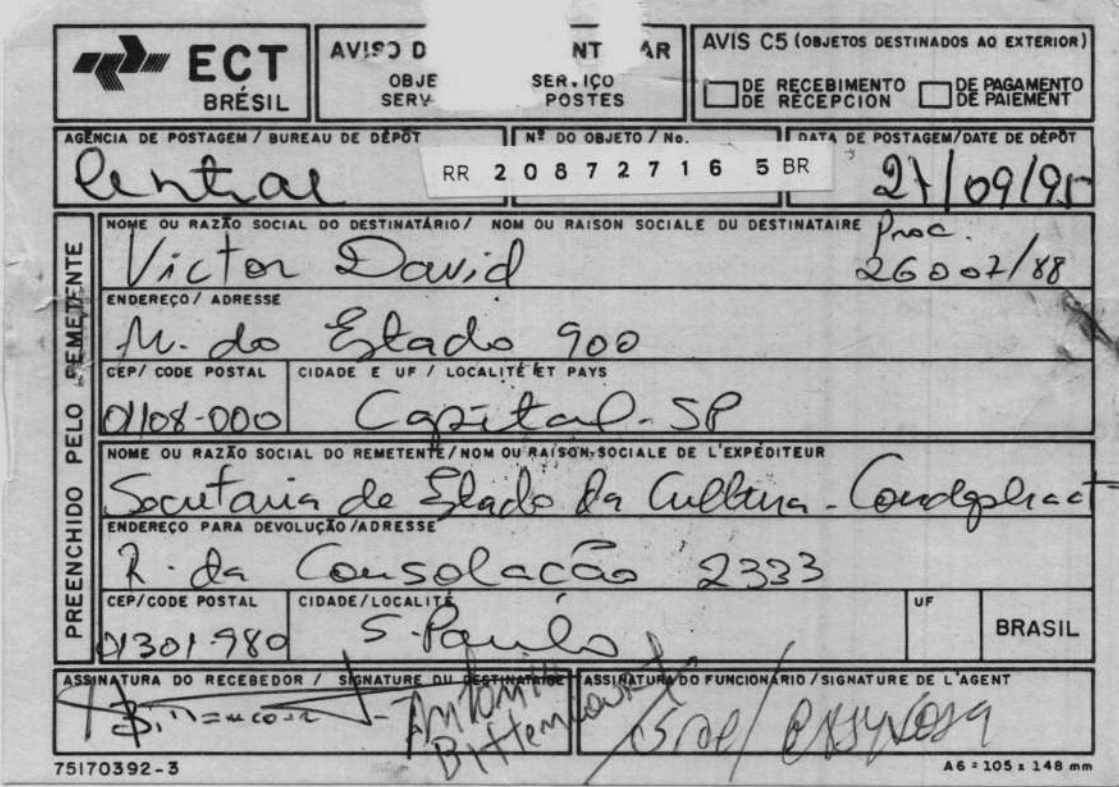 ECT
BRÉSIL
AVISO D NT AR
OBJE SERVIÇO
SERV POSTES
AVIS C5 (OBJETOS DESTINADOS AO EXTERIOR)
DE RECEBIMENTO
DE RÉCEPCION
DE PAGAMENTO
DE PAIEMENT
AGÊNCIA DE POSTAGEM / BUREAU DE DÉPÔT
Central
Nº DO OBJETO / No.
RR 20872716 5 BR
DATA DE POSTAGEM/DATE DE DÉPÔT
27/09/95
PREENCHIDO PELO REMETENTE
NOME OU RAZÃO SOCIAL DO DESTINATÁRIO / NOM OU RAISON SOCIALE DU DESTINATAIRE
Victor David
Proc.
26007/88
ENDEREÇO / ADRESSE
Av. do Estado 900
CEP/ CODE POSTAL
01108-000
CIDADE E UF / LOCALITÉ ET PAYS
Capital - SP
NOME OU RAZÃO SOCIAL DO REMETENTE/NOM OU RAISON SOCIALE DE L'EXPÉDITEUR
Secretaria de Estado da Cultura - Condephaat
ENDEREÇO PARA DEVOLUÇÃO /ADRESSE
R. da Consolação 2333
CEP/CODE POSTAL
01301-980
CIDADE/LOCALITÉ
S. Paulo
UF
BRASIL
ASSINATURA DO RECEBEDOR / SIGNATURE DU DESTINATAIRE
Antonio
Bittencourt
ASSINATURA DO FUNCIONÁRIO / SIGNATURE DE L'AGENT
75170392-3
A6 = 105 x 148 mm